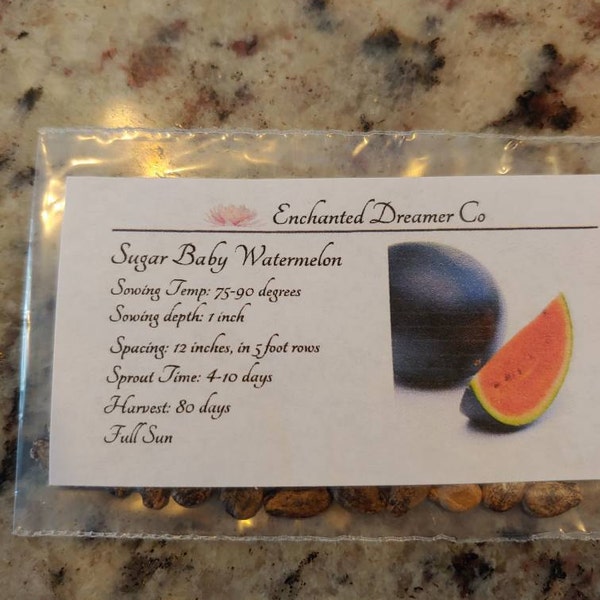 Enchanted Dreamer Co
Sugar Baby Watermelon
Sowing Temp: 75-90 degrees
Sowing depth: 1 inch
Spacing: 12 inches, in 5 foot rows
Sprout Time: 4-10 days
Harvest: 80 days
Full Sun